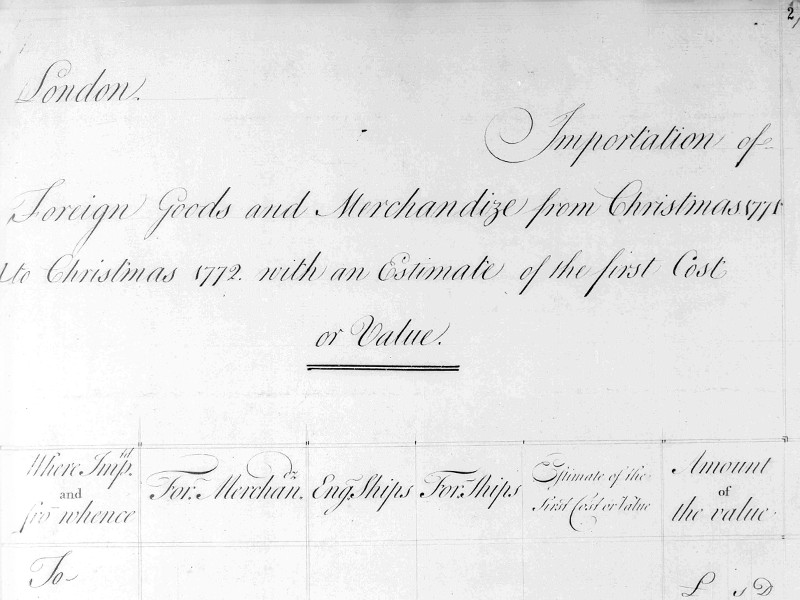 2
London.
Importation of
Foreign Goods and Merchandize from Christmas 1771
to Christmas 1772. with an Estimate of the first Cost
or Value.
Where Imp.td
and
fro whence
For. Merchan.dz
Eng. Ships
For. Ships
Estimate of the
First Cost or Value
Amount
of
the value
To
L s D